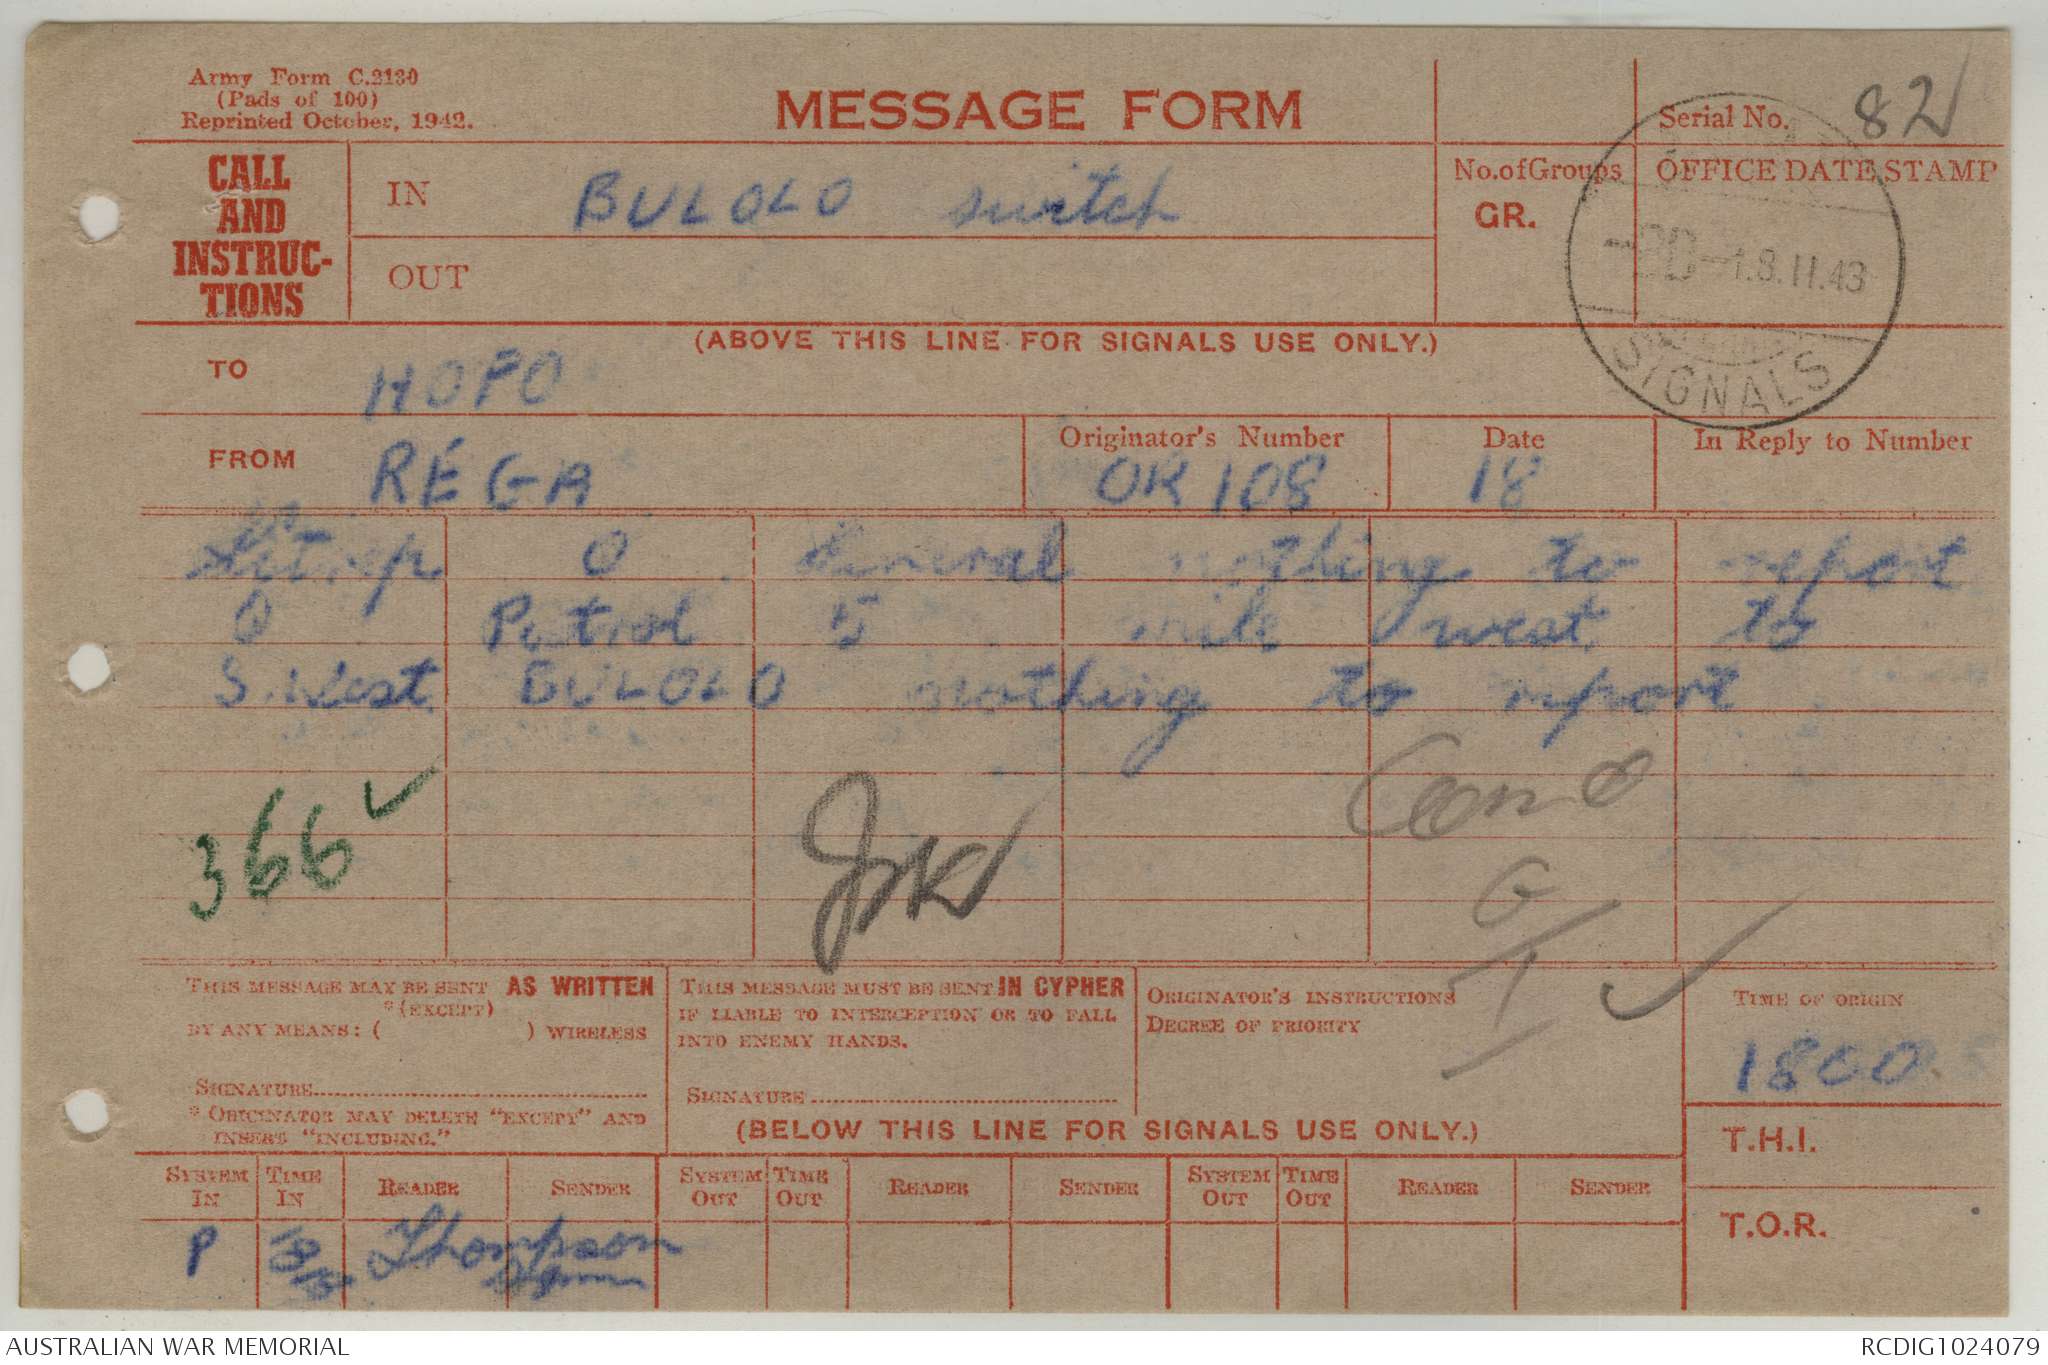 Army Form C.2130
(Pads of 100)
Reprinted October, 1942.
MESSAGE FORM
Serial No. 82
CALL AND INSTRUC-TIONS
IN BULOLO switch
OUT
No. of Groups
GR.
OFFICE DATE STAMP
18.11.43
SIGNALS
(ABOVE THIS LINE FOR SIGNALS USE ONLY.)
TO HOPO
FROM REGA
Originator's Number OR 108
Date 18
In Reply to Number
Sitrep O General nothing to report
O Patrol 5 mile west to
S.West BULOLO nothing to report
366 ✓
G
I
THIS MESSAGE MAY BE SENT AS WRITTEN
*(EXCEPT)
BY ANY MEANS: ( ) WIRELESS
SIGNATURE
* ORIGINATOR MAY DELETE "EXCEPT" AND
INSERT "INCLUDING."
THIS MESSAGE MUST BE SENT IN CYPHER
IF LIABLE TO INTERCEPTION OR TO FALL
INTO ENEMY HANDS.
SIGNATURE
ORIGINATOR'S INSTRUCTIONS
DEGREE OF PRIORITY
TIME OF ORIGIN
1800
(BELOW THIS LINE FOR SIGNALS USE ONLY.)
T.H.I.
T.O.R.
SYSTEM IN TIME IN READER SENDER SYSTEM OUT TIME OUT READER SENDER SYSTEM OUT TIME OUT READER SENDER
P Thompson
AUSTRALIAN WAR MEMORIAL
RCDIG1024079